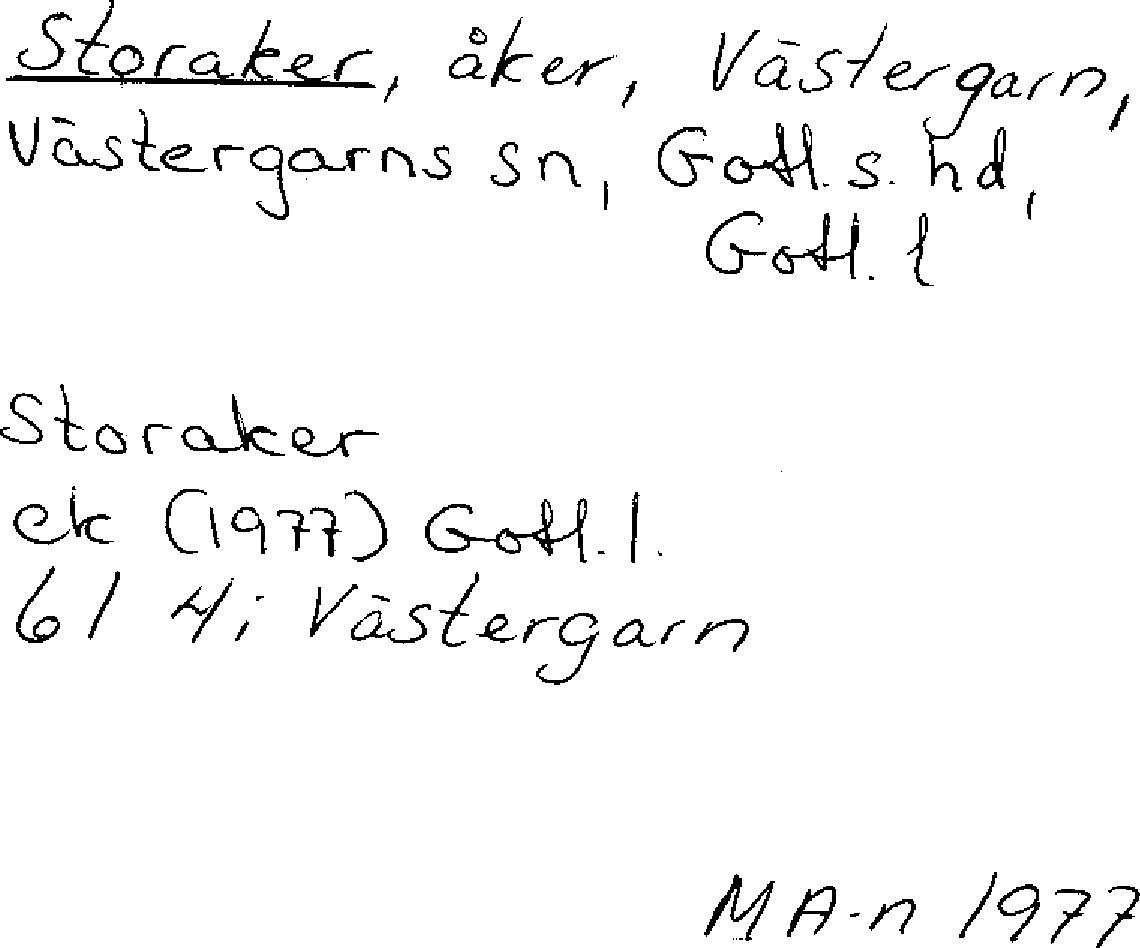 Storaker, åker, Västergarn,
Västergarns sn, Gotl. s. hd,
Gotl. l
Storaker
ek (1977) Gotl. l.
6I 4i Västergarn
MA-n 1977